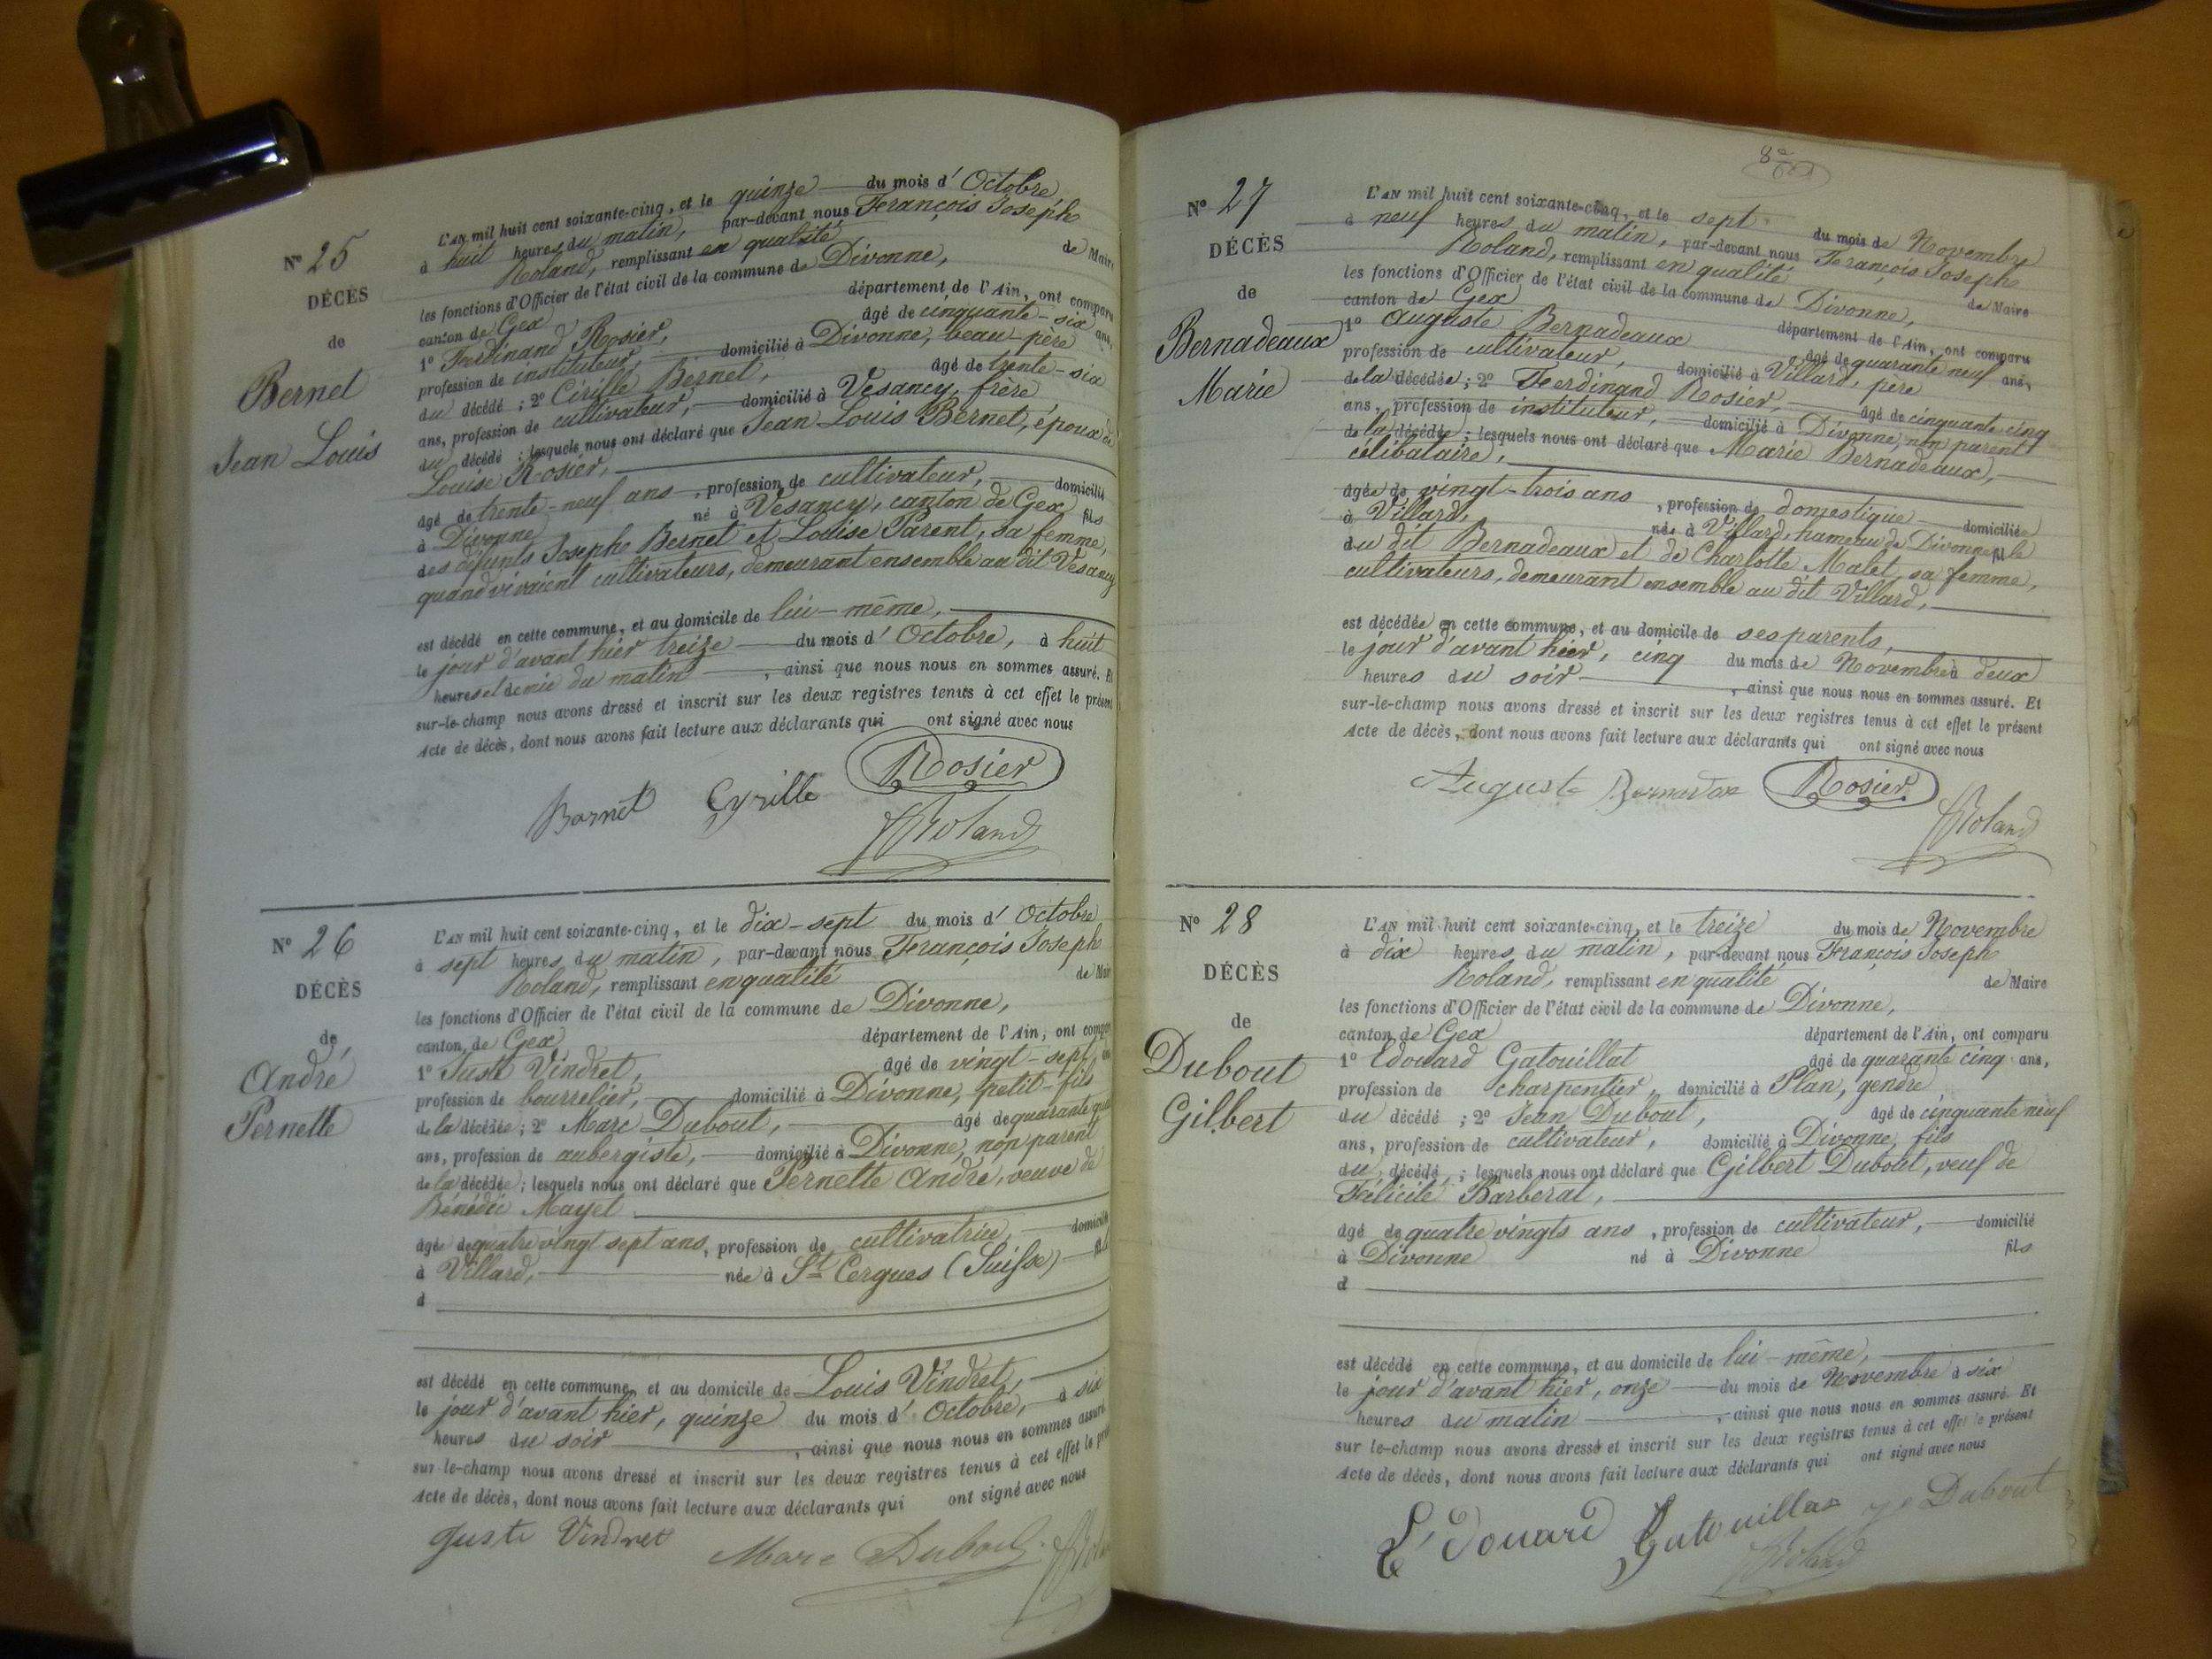 N° 25
DÉCÈS
de
Bernet
Jean Louis
L'AN mil huit cent soixante-cinq, et le quinze du mois d' Octobre
à huit heures du matin, par-devant nous François Joseph
Roland, remplissant en qualité de Maire
les fonctions d'Officier de l'état civil de la commune de Divonne,
canton de Gex département de l'Ain, ont comparu
1° Ferdinand Rosier, âgé de cinquante-six ans,
profession de instituteur, domicilié à Divonne, beau-père
du décédé ; 2° Cirille Bernet, âgé de trente-six
ans, profession de cultivateur, domicilié à Vesancy, frère
du décédé ; lesquels nous ont déclaré que Jean Louis Bernet, époux de
Louise Rosier,
âgé de trente-neuf ans, profession de cultivateur, domicilié
à Divonne né à Vesancy, canton de Gex fils
des défunts Joseph Bernet et Louise Parent, sa femme,
quand vivaient cultivateurs, demeurant ensemble au dit Vesancy
est décédé en cette commune, et au domicile de lui-même,
le jour d'avant hier treize du mois d' Octobre, à huit
heures et demie du matin, ainsi que nous nous en sommes assuré. Et
sur-le-champ nous avons dressé et inscrit sur les deux registres tenus à cet effet le présent
Acte de décès, dont nous avons fait lecture aux déclarants qui ont signé avec nous
Bornet Cyrille Rosier
Roland
N° 26
DÉCÈS
de
André
Pernette
L'AN mil huit cent soixante-cinq, et le dix-sept du mois d' Octobre
à sept heures du matin, par-devant nous François Joseph
Roland, remplissant en qualité de Maire
les fonctions d'Officier de l'état civil de la commune de Divonne,
canton de Gex département de l'Ain, ont comparu
1° Just Vindret, âgé de vingt-sept
profession de bourrelier, domicilié à Divonne, petit-fils
de la décédée ; 2° Marc Dubout, âgé de quarante
ans, profession de aubergiste, domicilié à Divonne, non parent
de la décédée ; lesquels nous ont déclaré que Pernette André, veuve de
Bénédic Mayet
âgée de quatre vingt sept ans, profession de cultivatrice,
à Villard, née à St Cergues (Suisse)
d
est décédé en cette commune, et au domicile de Louis Vindret,
le jour d'avant hier, quinze du mois d' Octobre, à six
heures du soir, ainsi que nous nous en sommes assuré.
sur-le-champ nous avons dressé et inscrit sur les deux registres tenus à cet effet le
Acte de décès, dont nous avons fait lecture aux déclarants qui ont signé avec nous
Juste Vindret Marc Dubout
N° 27
DÉCÈS
de
Bernadeaux
Marie
L'AN mil huit cent soixante-cinq, et le sept du mois de Novembre
à neuf heures du matin, par-devant nous François Joseph
Roland, remplissant en qualité de Maire
les fonctions d'Officier de l'état civil de la commune de Divonne,
canton de Gex département de l'Ain, ont comparu
1° Auguste Bernadeaux âgé de quarante neuf ans,
profession de cultivateur, domicilié à Villard, père
de la décédée ; 2° Ferdinand Rosier, âgé de cinquante cinq
ans, profession de instituteur, domicilié à Divonne, non parent
de la décédée ; lesquels nous ont déclaré que Marie Bernadeaux,
célibataire,
âgée de vingt-trois ans, profession de domestique domiciliée
à Villard, née à Villard, hameau de Divonne fille
du dit Bernadeaux et de Charlotte Malet, sa femme,
cultivateurs, demeurant ensemble au dit Villard,
est décédée en cette commune, et au domicile de ses parents,
le jour d'avant hier, cinq du mois de Novembre à deux
heures du soir, ainsi que nous nous en sommes assuré. Et
sur-le-champ nous avons dressé et inscrit sur les deux registres tenus à cet effet le présent
Acte de décès, dont nous avons fait lecture aux déclarants qui ont signé avec nous
Auguste Rosier
Roland
N° 28
DÉCÈS
de
Dubout
Gilbert
L'AN mil huit cent soixante-cinq, et le treize du mois de Novembre
à dix heures du matin, par-devant nous François Joseph
Roland, remplissant en qualité de Maire
les fonctions d'Officier de l'état civil de la commune de Divonne,
canton de Gex département de l'Ain, ont comparu
1° Edouard Gatouillat âgé de quarante cinq ans,
profession de charpentier, domicilié à Plan, gendre
du décédé ; 2° Jean Dubout, âgé de cinquante neuf
ans, profession de cultivateur, domicilié à Divonne, fils
du décédé ; lesquels nous ont déclaré que Gilbert Dubout, veuf de
Félicité Barberat,
âgé de quatre vingts ans, profession de cultivateur, domicilié
à Divonne né à Divonne fils
d
est décédé en cette commune, et au domicile de lui-même,
le jour d'avant hier, onze du mois de Novembre à six
heures du matin, ainsi que nous nous en sommes assuré. Et
sur le-champ nous avons dressé et inscrit sur les deux registres tenus à cet effet le présent
Acte de décès, dont nous avons fait lecture aux déclarants qui ont signé avec nous
Edouard Gatouillat Dubout
Roland